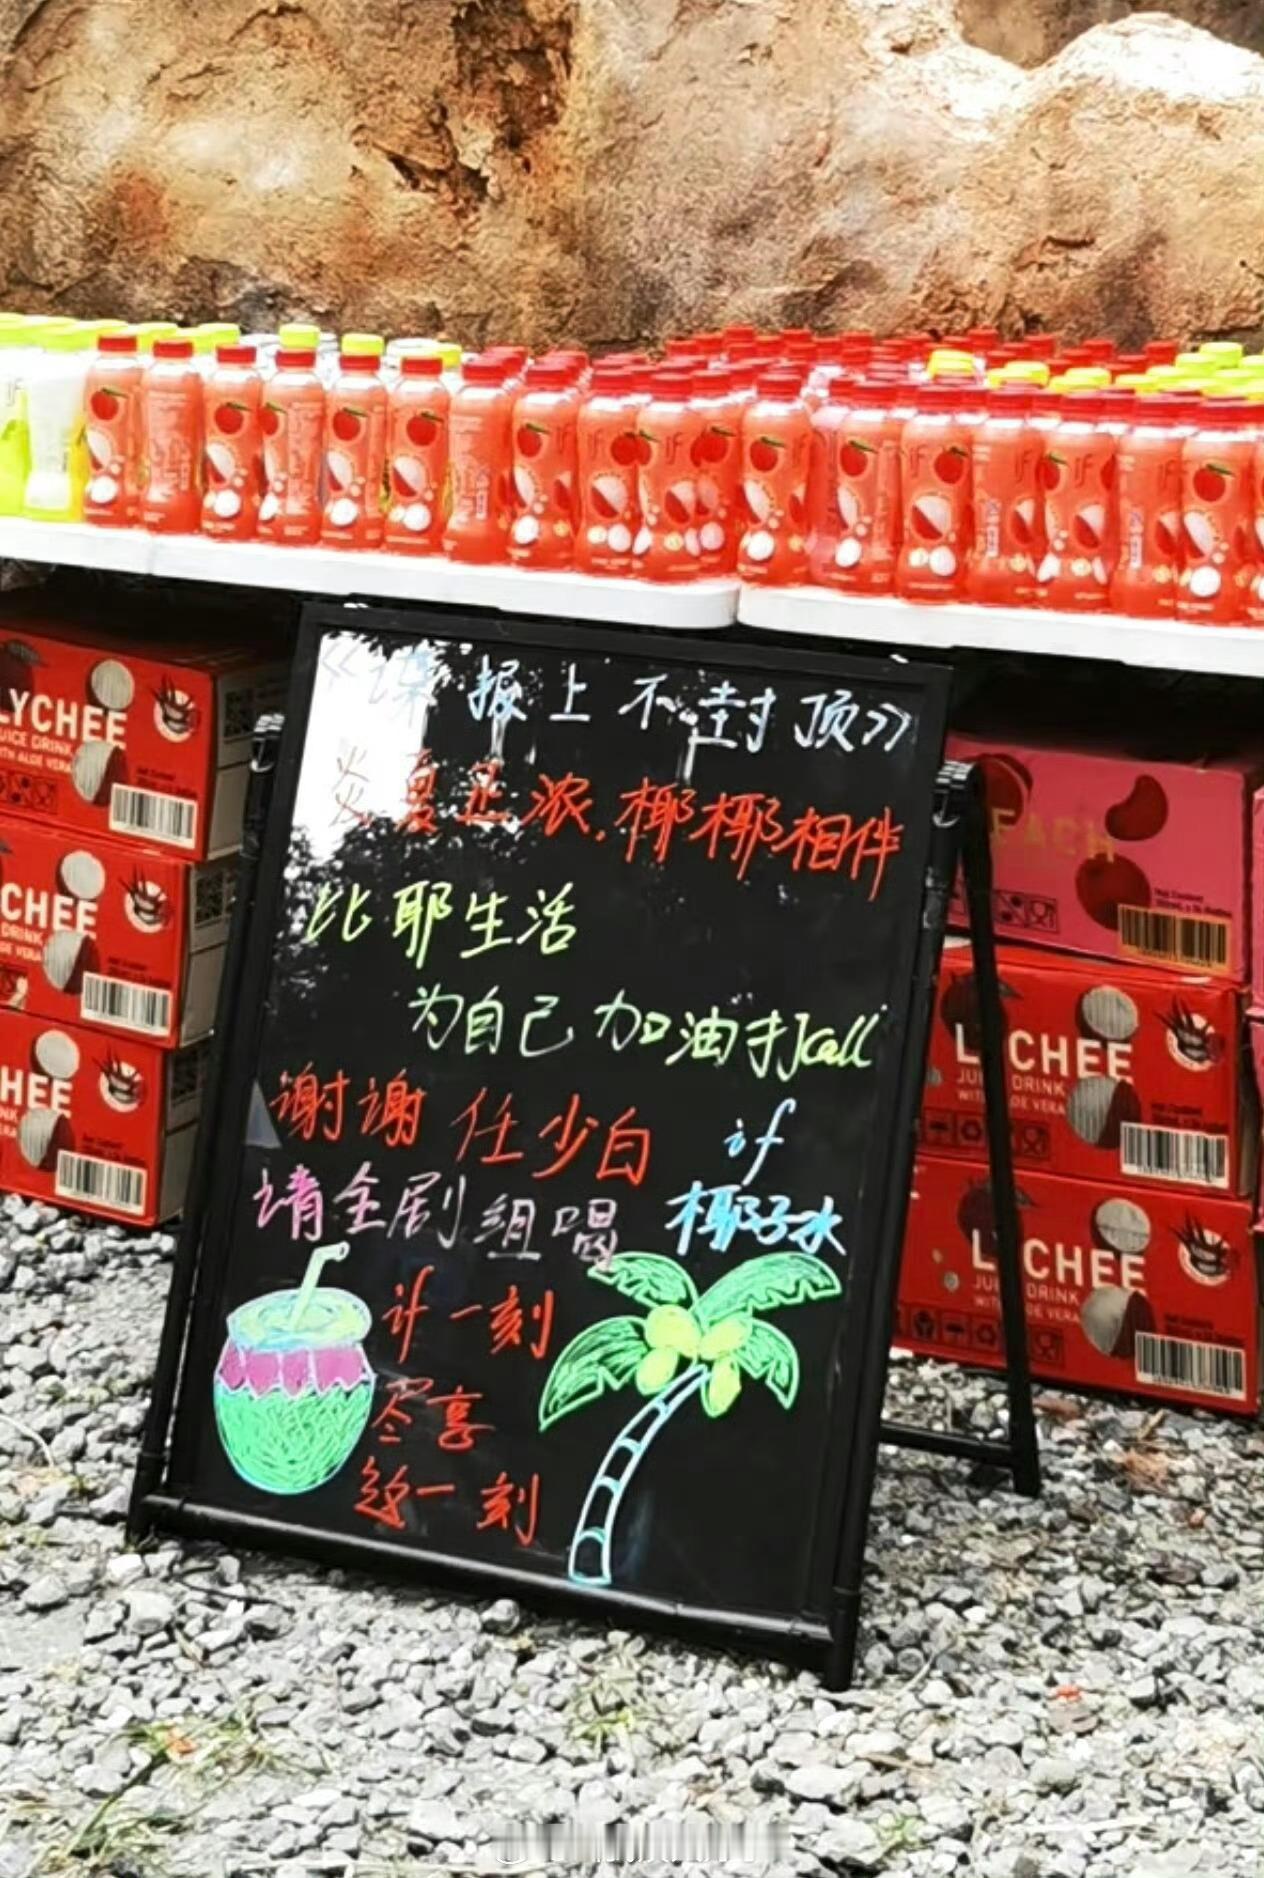 《谍报上不封顶》
炎夏正浓,椰椰相伴
比耶生活
为自己加油打call
谢谢任少白
请全剧组喝
if
椰子水
if一刻
尽享
这一刻
LYCHEE
JUICE DRINK
WITH ALOE VERA
CHEE
DRINK
HEE
PEACH
LYCHEE
JUICE DRINK
WITH ALOE VERA
LYCHEE
JUICE DRINK
WITH ALOE VERA